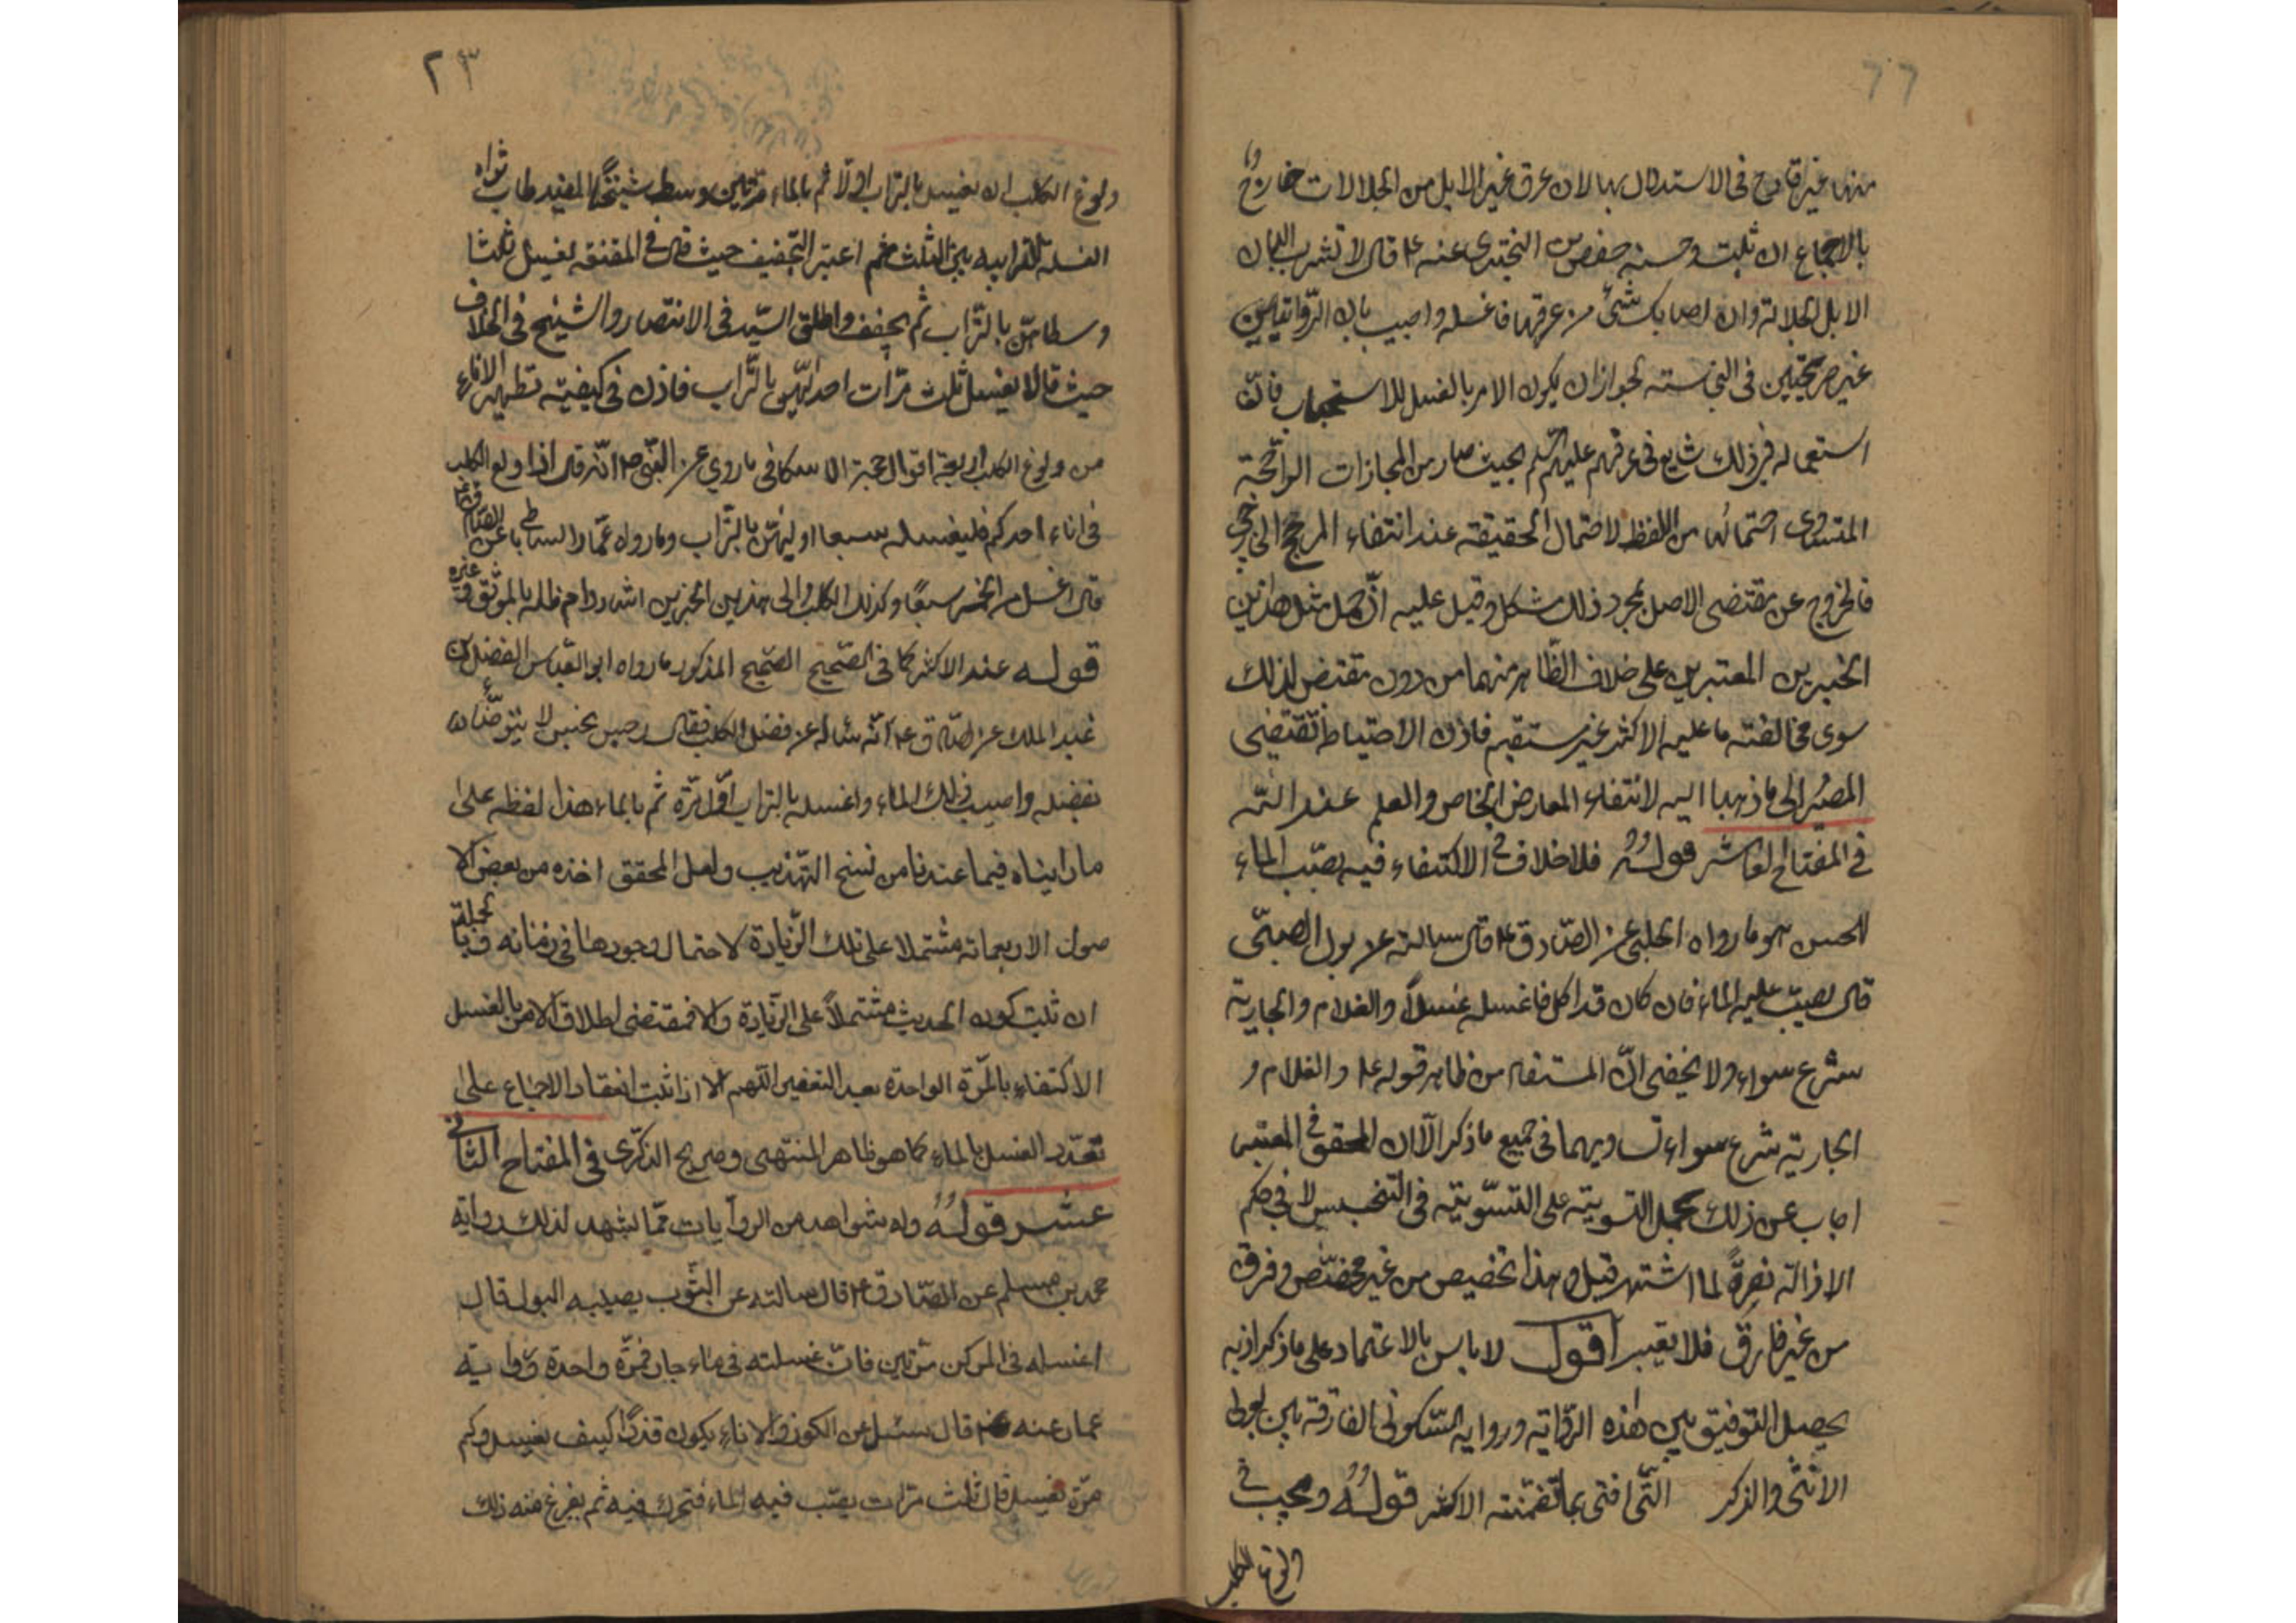 ٦٦
منها غير قادح فى الاستدلال بها لان عرق غير الابل من الجلالات خارج
بالاجماع ان ثبت وحسنه حفص بن البخترى عنه ع قال لا تشرب البان
الابل الجلالة وان اصابك شئ من عرقها فاغسله واجيب بان الروايتين
غير صريحتين فى النجاسته لجواز ان يكون الامر بالغسل للاستحباب فان
استعماله فى ذلك شايع فى عرفهم عليهم السلم بحيث صار من المجازات الراجحة
المتساوى احتمالها من اللفظ لاحتمال الحقيقة عند انتفاء المرجح الخارجى
فالخروج عن مقتضى الاصل بمجرد ذلك مشكل وقيل عليه ان حمل مثل هذين
الخبرين المعتبرين على خلاف الظاهر منهما من دون مقتض لذلك
سوى مخالفته ما عليه الاكثر غير مستقيم فاذن الاحتياط تقتضى
المصير الى ما ذهبا اليه لانتفاء المعارض الخاص والعلم عند الله
فى المفتاح العاشر قوله فلا خلاف فى الاكتفاء فيه بصب الماء
للحسن هو ما رواه الحلبى عن الصادق ع قال سالته عن بول الصبى
قال يصب عليه الماء فان كان قد اكل فاغسله غسلاً والغلام والجارية
شرع سواء ولا يخفى ان المستفاد من ظاهر قوله ع والغلام و
الجارية شرع سواء تساويهما فى جميع ما ذكر الا ان المحقق فى المعتبر
اجاب عن ذلك بحمل التسوية على التسوية فى التنجيس لا فى حكم
الازالة نصرةً لما اشتهر قيل وهذا تخصيص من غير مخصّص وفرق
من غير فارق فلا يعتبر اقول لا باس بالاعتماد على ما ذكر اذ به
يحصل التوفيق بين هذه الرواية ورواية السكونى الفارقة بين بول
الانثى والذكر التى افتى بما تضمنته الاكثر قوله ويجب فى
ولوغ الكلب
٢٣
ولوغ الكلب ان يغسل بالتراب اولا ثم بالماء مرتين وسط شيخنا المفيد طاب ثراه
الغسلة الترابيه بين الثلث ثم اعتبر التجفيف حيث قال فى المقنعة يغسل ثلثا
وسطاهن بالتراب ثم يجفف واطلق السيد فى الانتصار والشيخ فى الخلاف
حيث قالا يغسل ثلث مرات احداهن بالتراب فاذن فى كيفية تطهير الاناء
من ولوغ الكلب اربعة اقوال حجة الاسكافى ما روي عن النبى ص انه قال اذا ولغ الكلب
فى اناء احدكم فليغسله سبعا اوليهن بالتراب وما رواه عمار الساباطى عن الصادق ع
قال اغسل من الخمر سبعًا وكذلك الكلب والى هذين الخبرين اشار دام ظله بالموثق وغيره
قوله عند الاكثر كما فى الصحيح الصحيح المذكور ما رواه ابو العباس الفضل بن
عبد الملك عن الصادق ع انه ساله عن فضل الكلب فقال رجس نجس لا يتوضأ
بفضله واصبب ذلك الماء واغسله بالتراب اول مرّة ثم بالماء هذا لفظه على
ما راينا فيما عندنا من نسخ التهذيب ولعل المحقق اخذه من بعض الا
صول الاربعمائة مشتملا على تلك الزيادة لاحتمال وجودها فى زمانه وبالجملة
ان ثبت كون الحديث مشتملاً على الزيادة والا فمقتضى اطلاق الامر بالغسل
الاكتفاء بالمرة الواحدة بعد التعفير اللهم الا اذا ثبت انعقاد الاجماع على
تعدد الغسل بالماء كما هو ظاهر المنتهى وصريح الذكرى فى المفتاح الثانى
عشر قوله وله شواهد من الروايات مما يشهد لذلك رواية
محمد بن مسلم عن الصادق ع قال سالته عن الثوب يصيبه البول قال
اغسله فى المركن مرتين فان غسلته فى ماء جار فمرّة واحدة ورواية
عمار عنه قال سئل عن الكوز والاناء يكون قذرًا كيف يغسل وكم
مرّة يغسل قال ثلث مرّات يصب فيه الماء فتحرك فيه ثم يفرغ منه ذلك